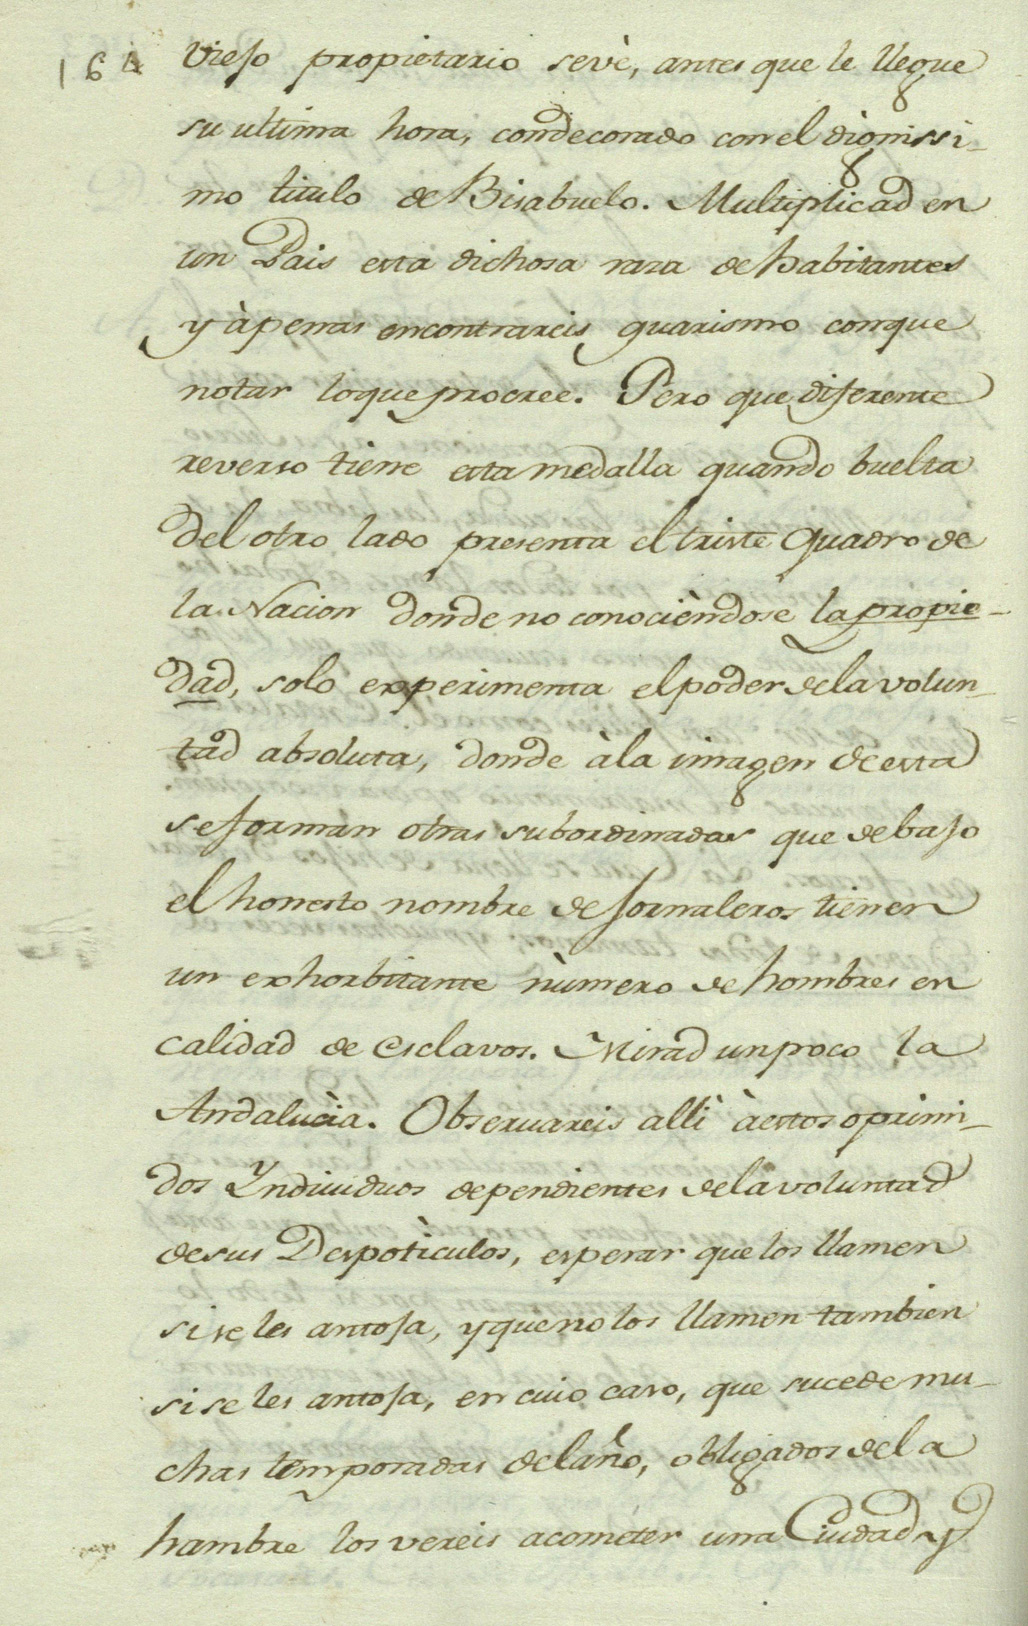 164 Viejo propietario sevè, antes que le llegue
su ultima hora, condecorado con el dignissi-
mo titulo de Bisabuelo. Multiplicad en
un Pais esta dichosa raza de habitantes
y àpenas encontrareis guarismo conque
notar loque procree. Pero que diferente
reverso tiene esta medalla quando buelta
del otro lado presenta el triste quadro de
la Nacion donde no conocièndose la propie-
dad, solo experimenta el poder dela volun-
tad absoluta, donde à la imagen de esta
se forman otras subordinadas que debajo
el honesto nombre de jornaleros tienen
un exhorbitante nùmero de hombres en
calidad de esclavos. Mirad un poco la
Andalucia. Observareis alli à estos oprimi-
dos Yndividuos dependientes dela voluntad
desus Despotìculos, esperar que los llamen
si se les antoja, y que no los llamen tambien
si se les antoja, en cuio caso, que sucede mu-
chas temporadas del año, obligados dela
hambre los vereis acometer una Ciudad y